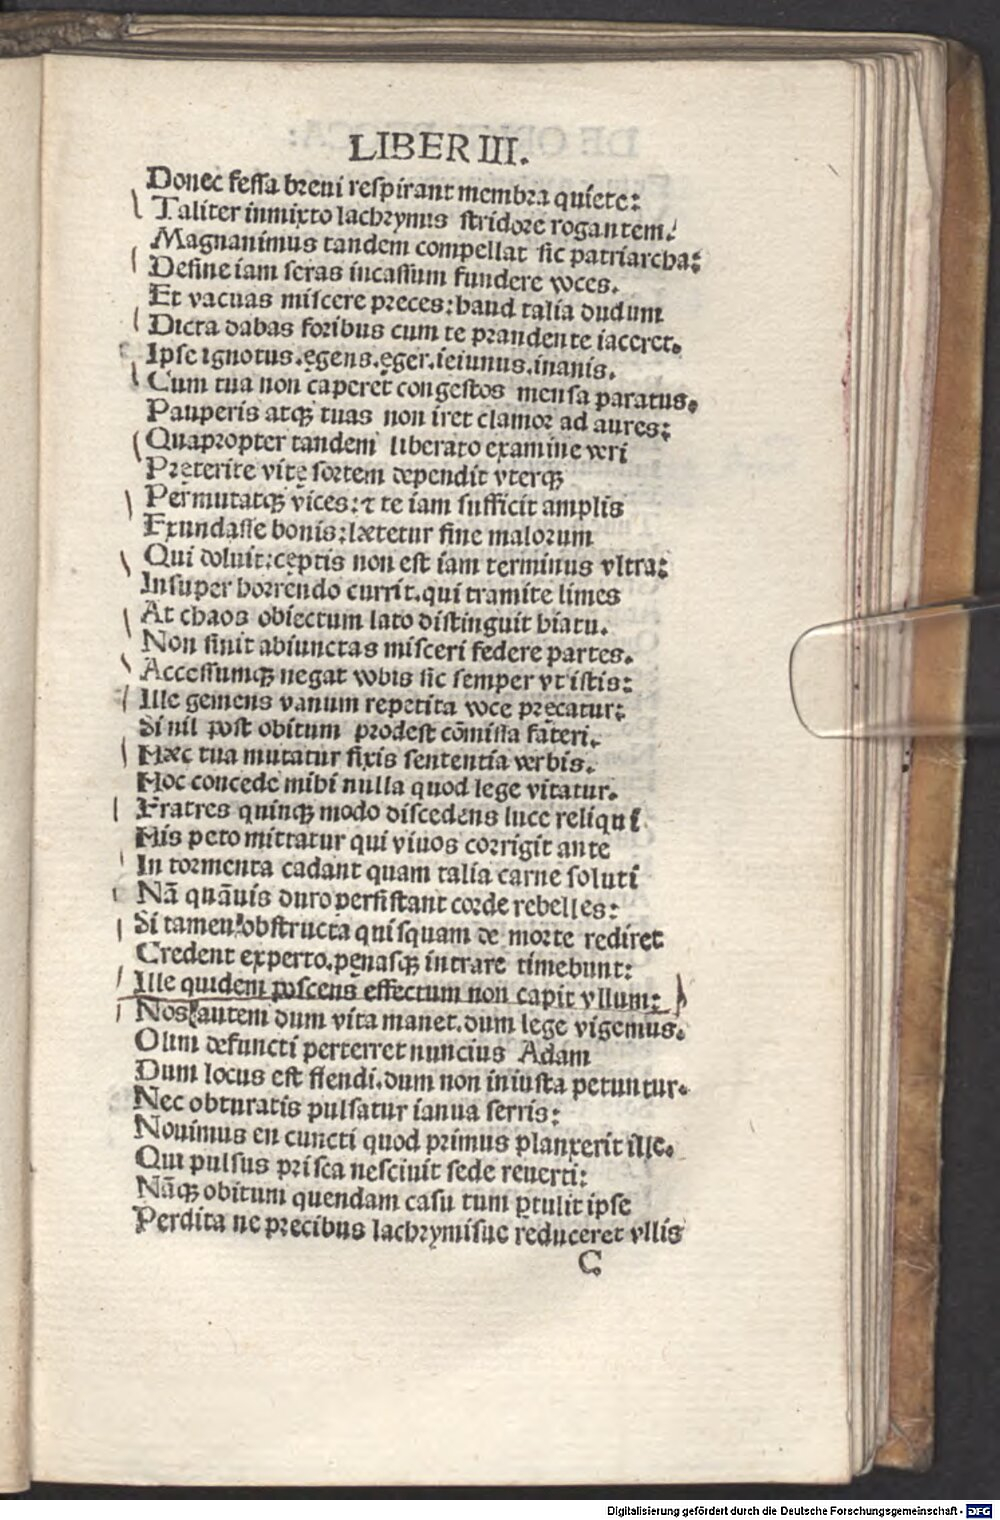 LIBER III.
Donec fessa breui respirant membra quiete:
Taliter inmixto lachrymis stridore rogantem:
Magnanimus tandem compellat sic patriarcha:
Desine iam seras incassum fundere voces.
Et vacuas miscere preces: haud talia dudum
Dicta dabas foribus cum te prandente iaceret.
Ipse ignotus. ęgens. ęger. ieiunus. inanis.
Cum tua non caperet congestos mensa paratus.
Pauperis atqꝫ tuas non iret clamor ad aures:
Quapropter tandem liberato examine veri
Pręterite vitę sortem dependit vterqꝫ
Permutatqꝫ vices: ⁊ te iam sufficit amplis
Exundasse bonis: lætetur fine malorum
Qui doluit: cęptis non est iam terminus vltra:
Insuper horrendo currit. qui tramite limes
At chaos obiectum lato distinguit hiatu.
Non sinit abiunctas misceri federe partes.
Accessumqꝫ negat vobis sic semper vt istis:
Ille gemens vanum repetita voce precatur:
Si nil post obitum prodest cōmissa fateri.
Hæc tua mutatur fixis sententia verbis.
Hoc concede mihi nulla quod lege vitatur.
Fratres quinqꝫ modo discedens luce reliqui
His peto mittatur qui viuos corrigit ante
In tormenta cadant quam talia carne soluti
Nā quāuis duro persistant corde rebelles:
Si tamen obstructa quisquam de morte rediret
Credent experto. pęnasqꝫ intrare timebunt:
Ille quidem poscens effectum non capit vllum:
Nos autem dum vita manet. dum lege vigemus.
Olim defuncti perterret nuncius Adam
Dum locus est flendi. dum non iniusta petuntur.
Nec obturatis pulsatur ianua serris:
Nouimus en cuncti quod primus planxerit ille.
Qui pulsus prisca nesciuit sede reuerti:
Nāqꝫ obitum quendam casu tum ꝑtulit ipse
Perdita ne precibus lachrymisue reduceret vllis
C
Digitalisierung gefördert durch die Deutsche Forschungsgemeinschaft - DFG